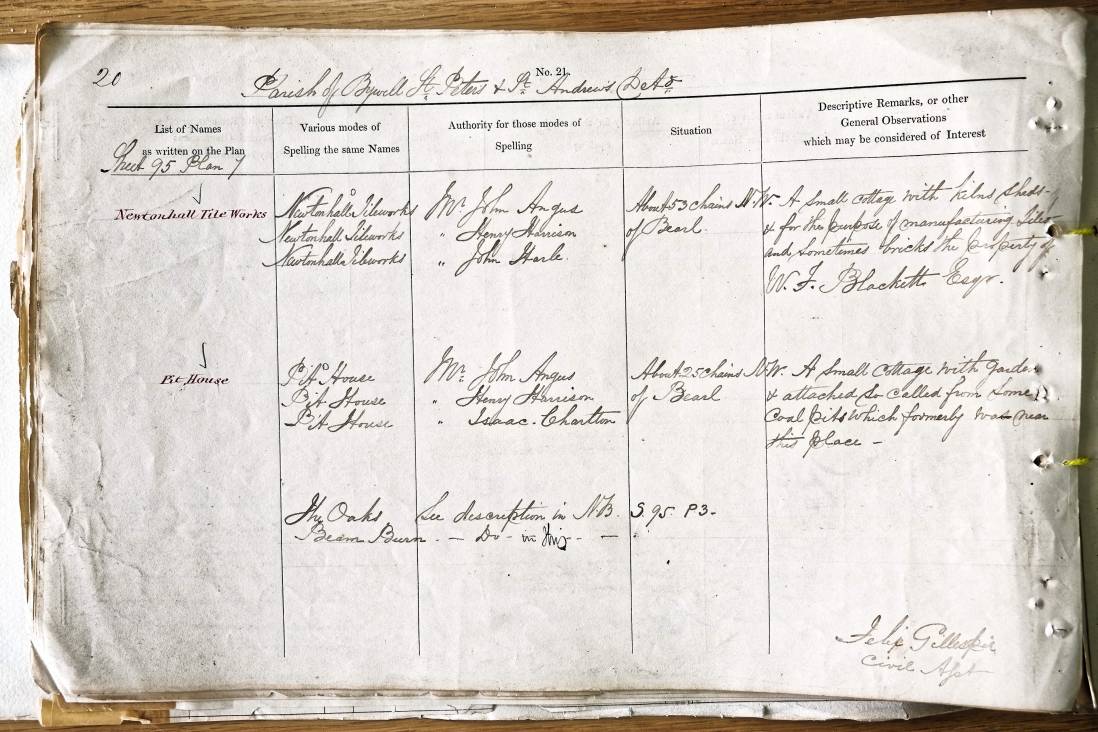 20
No. 21.
Parish of Bywell St. Peters & St. Andrews Detd.
List of Names
as written on the Plan
Various modes of
Spelling the same Names
Authority for those modes of
Spelling
Situation
Descriptive Remarks, or other
General Observations
which may be considered of Interest
Sheet 95 Plan 7
Newtonhall Tile Works
Newtonhall Tileworks
Newtonhall Tileworks
Newtonhall Tileworks
Mr. John Angus
" Henry Harrison
" John Harle
About 53 chains N.W.
of Bearl.
A small cottage with kilns sheds
& for the purpose of manufacturing tiles
and sometimes bricks the property of
W. F. Blackett Esqr.
Pit House
Pit House
Pit House
Pit House
Mr. John Angus
" Henry Harrison
" Isaac Charlton
About 25 chains N.W.
of Bearl
A small cottage with garden
& attached so called from some
Coal pits which formerly was near
this place -
The Oaks See description in N.B. S 95 P3.
Beam Burn - Do - in this -
Felix Gillespie
Civil Asst